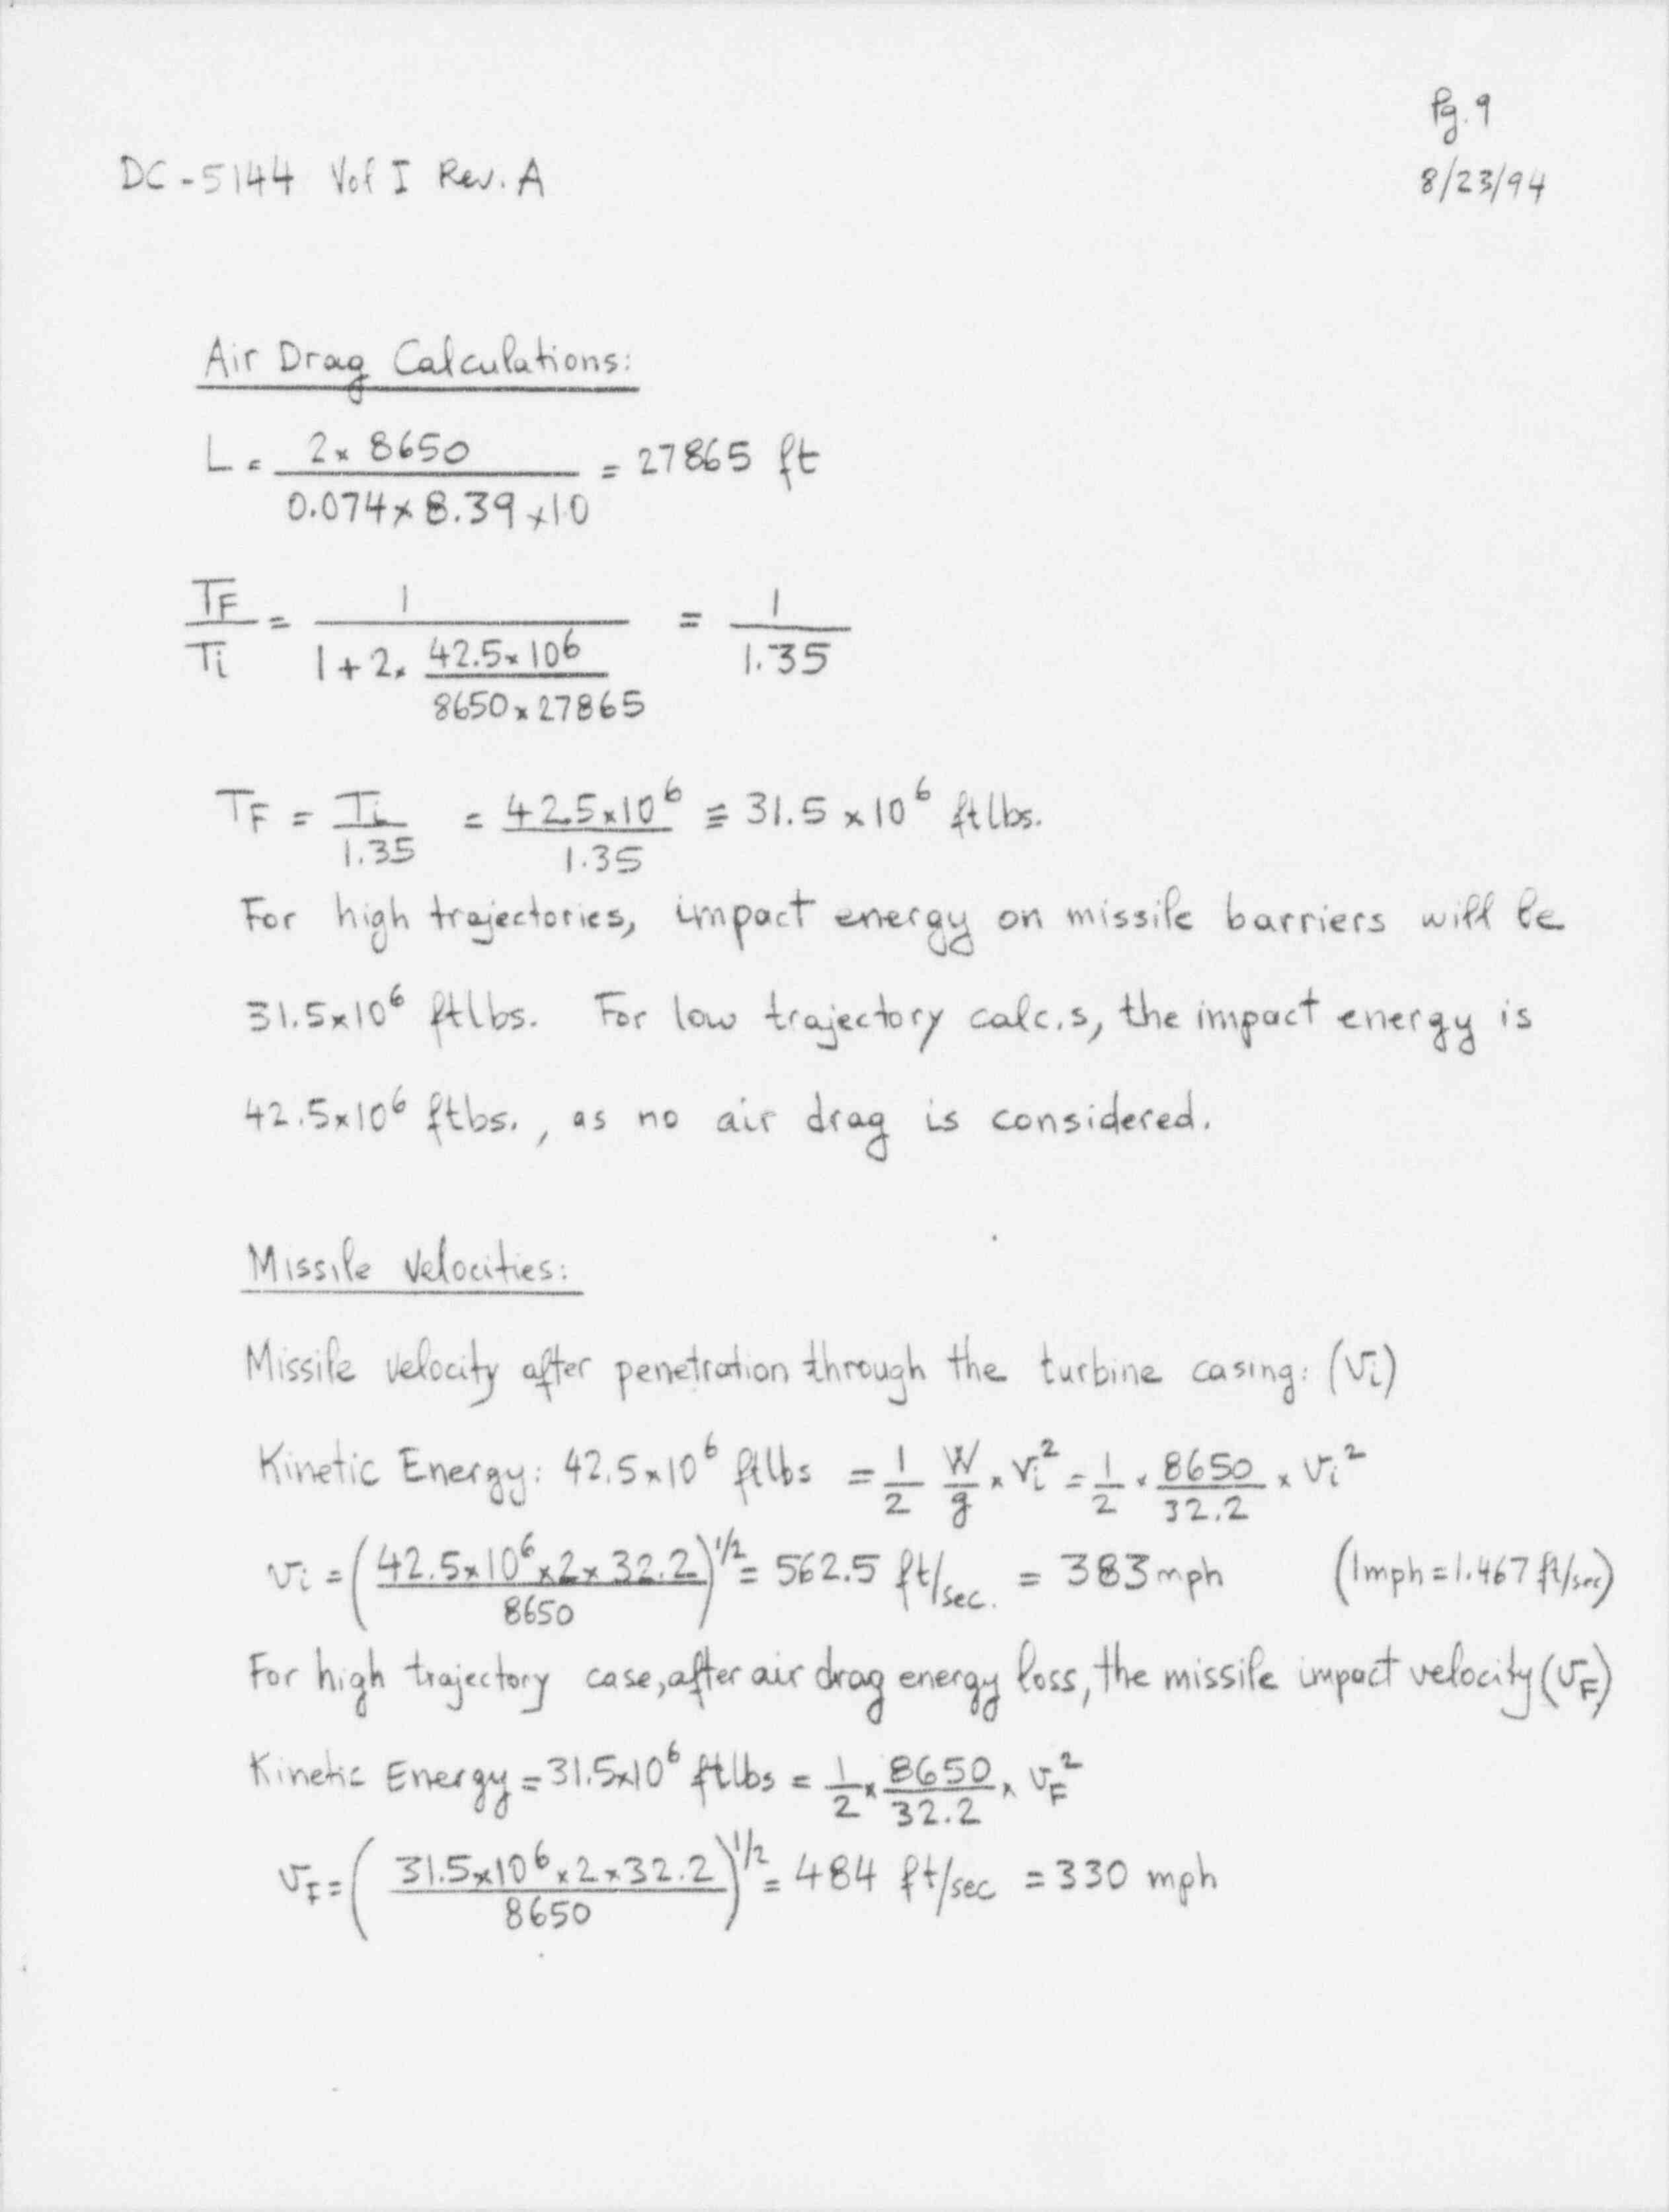 Pg. 9
DC-5144 Vol I Rev. A
8/23/94
Air Drag Calculations:
L = 2 x 8650 / 0.074 x 8.39 x 1.0 = 27865 ft
TF / Ti = 1 / 1 + 2 x 42.5 x 10^6 / 8650 x 27865 = 1 / 1.35
TF = Ti / 1.35 = 42.5 x 10^6 / 1.35 ≅ 31.5 x 10^6 ft lbs.
For high trajectories, impact energy on missile barriers will be
31.5 x 10^6 ft lbs. For low trajectory calc.s, the impact energy is
42.5 x 10^6 ftbs., as no air drag is considered.
Missile Velocities:
Missile velocity after penetration through the turbine casing: (Vi)
Kinetic Energy: 42.5 x 10^6 ft lbs = 1/2 W/g x Vi^2 = 1/2 x 8650/32.2 x Vi^2
Vi = (42.5 x 10^6 x 2 x 32.2 / 8650)^1/2 = 562.5 ft/sec. = 383 mph (1mph = 1.467 ft/sec)
For high trajectory case, after air drag energy loss, the missile impact velocity (VF)
Kinetic Energy = 31.5 x 10^6 ft lbs = 1/2 x 8650/32.2 x VF^2
VF = (31.5 x 10^6 x 2 x 32.2 / 8650)^1/2 = 484 ft/sec = 330 mph